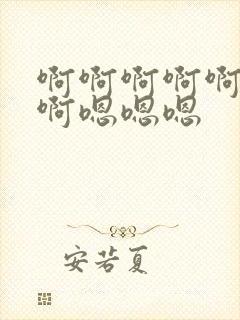 啊啊啊啊啊
啊嗯嗯嗯
安若夏